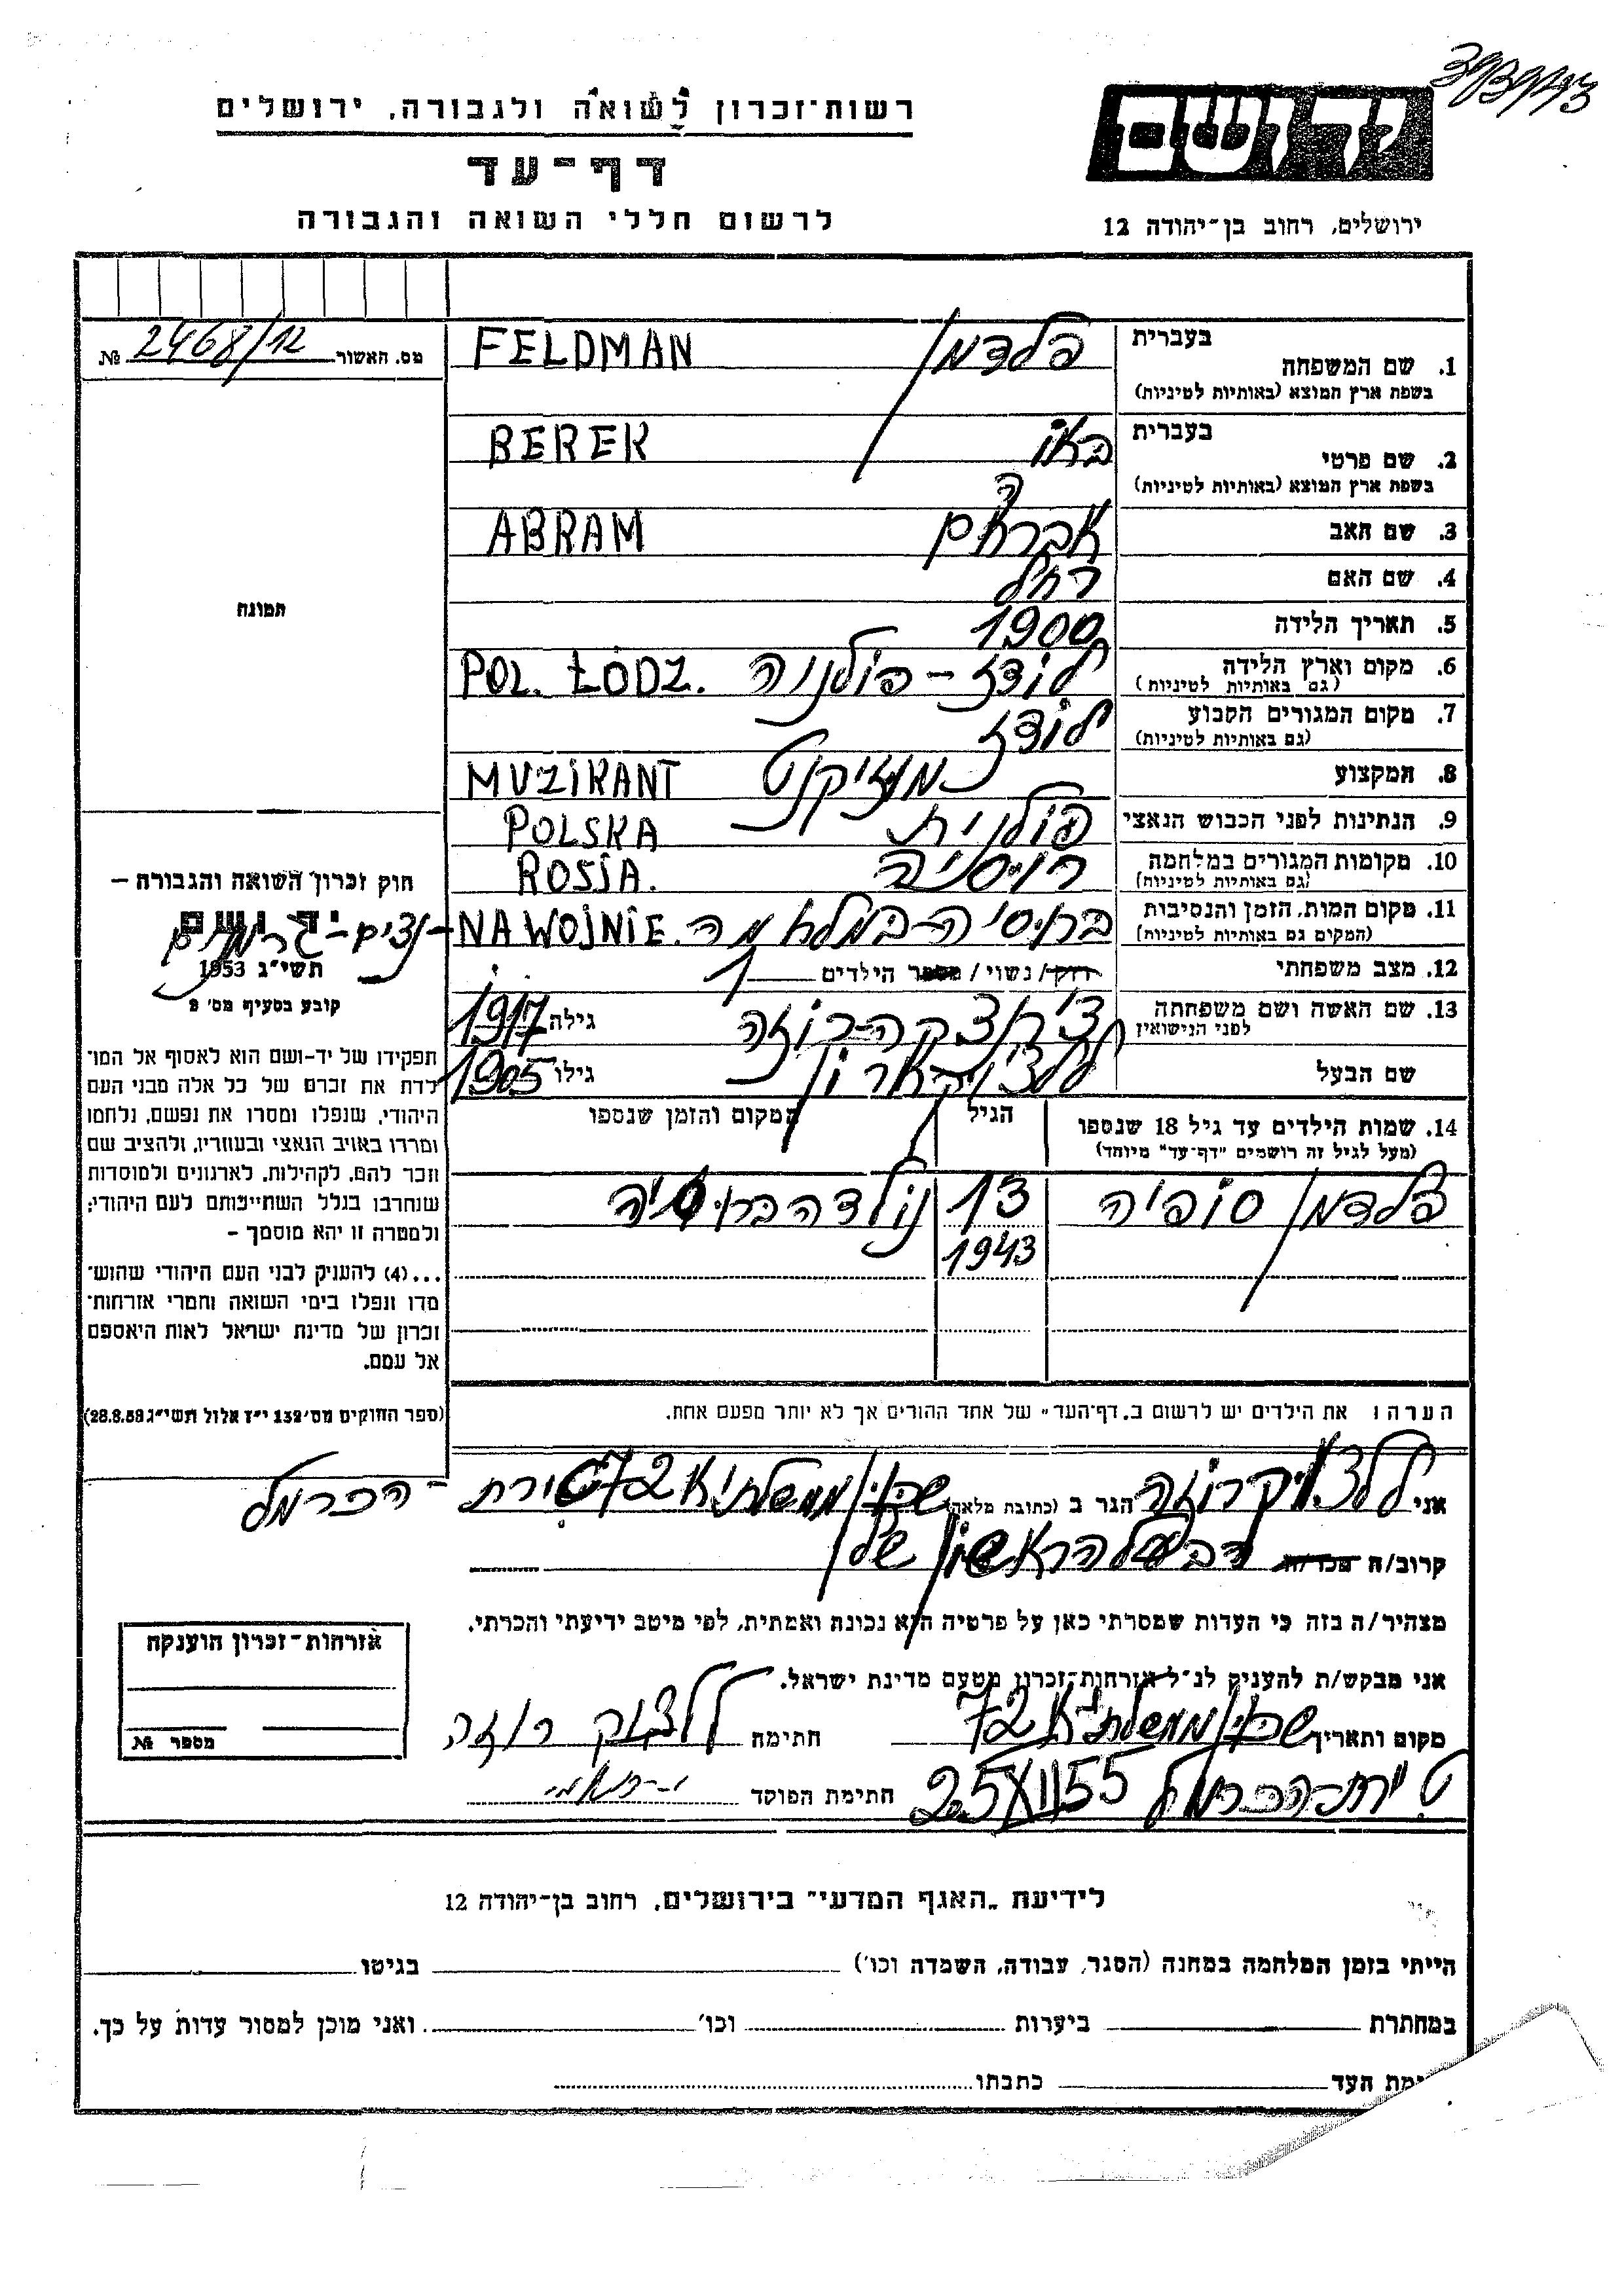 רשות־זכרון לשואה ולגבורה, ירושלים
דף־עד
לרשום חללי השואה והגבורה
יד ושם
ירושלים, רחוב בן־יהודה 12
מס. האשור 2468/12 №
בעברית
1. שם המשפחה פלדמן FELDMAN
בשפת ארץ המוצא (באותיות לטיניות)
בעברית
2. שם פרטי BEREK
בשפת ארץ המוצא (באותיות לטיניות)
3. שם האב אברהם ABRAM
4. שם האם רחל
5. תאריך הלידה 1900
6. מקום וארץ הלידה לודז - פולניה POL. ŁÓDZ.
(גם באותיות לטיניות)
7. מקום המגורים הקבוע לודז
(גם באותיות לטיניות)
8. המקצוע מוזיקנט MUZIKANT
9. הנתינות לפני הכבוש הנאצי פולנית POLSKA
10. מקומות המגורים במלחמה רוסיה ROSIA.
(גם באותיות לטיניות)
11. מקום המות, הזמן והנסיבות NA WOJNIE
(המקום גם באותיות לטיניות)
12. מצב משפחתי רוק / נשוי / מספר הילדים 1
13. שם האשה ושם משפחתה גילה 1917
לפני הנישואין
שם הבעל גילו 1905
14. שמות הילדים עד גיל 18 שנספו הגיל המקום והזמן שנספו
(מעל לגיל זה רושמים "דף־עד" מיוחד)
פלדמן סופיה 13 נולדה ברוסיה
1943
הערה: את הילדים יש לרשום ב„דף־העד" של אחד ההורים אך לא יותר מפעם אחת.
תמונה
חוק זכרון השואה והגבורה –
יד ושם
תשי"ג 1953
קובע בסעיף מס' 2
תפקידו של יד־ושם הוא לאסוף אל המו־
לדת את זכרם של כל אלה מבני העם
היהודי, שנפלו ומסרו את נפשם, נלחמו
ומרדו באויב הנאצי ובעוזריו, ולהציב שם
וזכר להם, לקהילות, לארגונים ולמוסדות
שנחרבו בגלל השתייכותם לעם היהודי;
ולמטרה זו יהא מוסמך –
...(4) להעניק לבני העם היהודי שהוש־
מדו ונפלו בימי השואה והמרי אזרחות־
זכרון של מדינת ישראל לאות היאספם
אל עמם.
(ספר החוקים מס' 132 י"ז אלול תשי"ג 28.8.53)
אני רוזה הגר ב (כתובת מלאה) שכון ממשלתי א 72 טירת - הכרמל
קרוב/ה מכר/ה הבעל הראשון שלי
מצהיר/ה בזה כי העדות שמסרתי כאן על פרטיה היא נכונה ואמתית, לפי מיטב ידיעתי והכרתי.
אני מבקש/ת להעניק לנ"ל אזרחות־זכרון מטעם מדינת ישראל.
מקום ותאריך שכון ממשלתי א 72 חתימה רוזה
טירת-הכרמל 25/XII 55 חתימת הפוקד
אזרחות־זכרון הוענקה
מספר №
לידיעת „האגף המדעי" בירושלים, רחוב בן־יהודה 12
הייתי בזמן המלחמה במחנה (הסגר, עבודה, השמדה וכו') בגיטו
במחתרת ביערות וכו' ואני מוכן למסור עדות על כך.
העד כתבתו